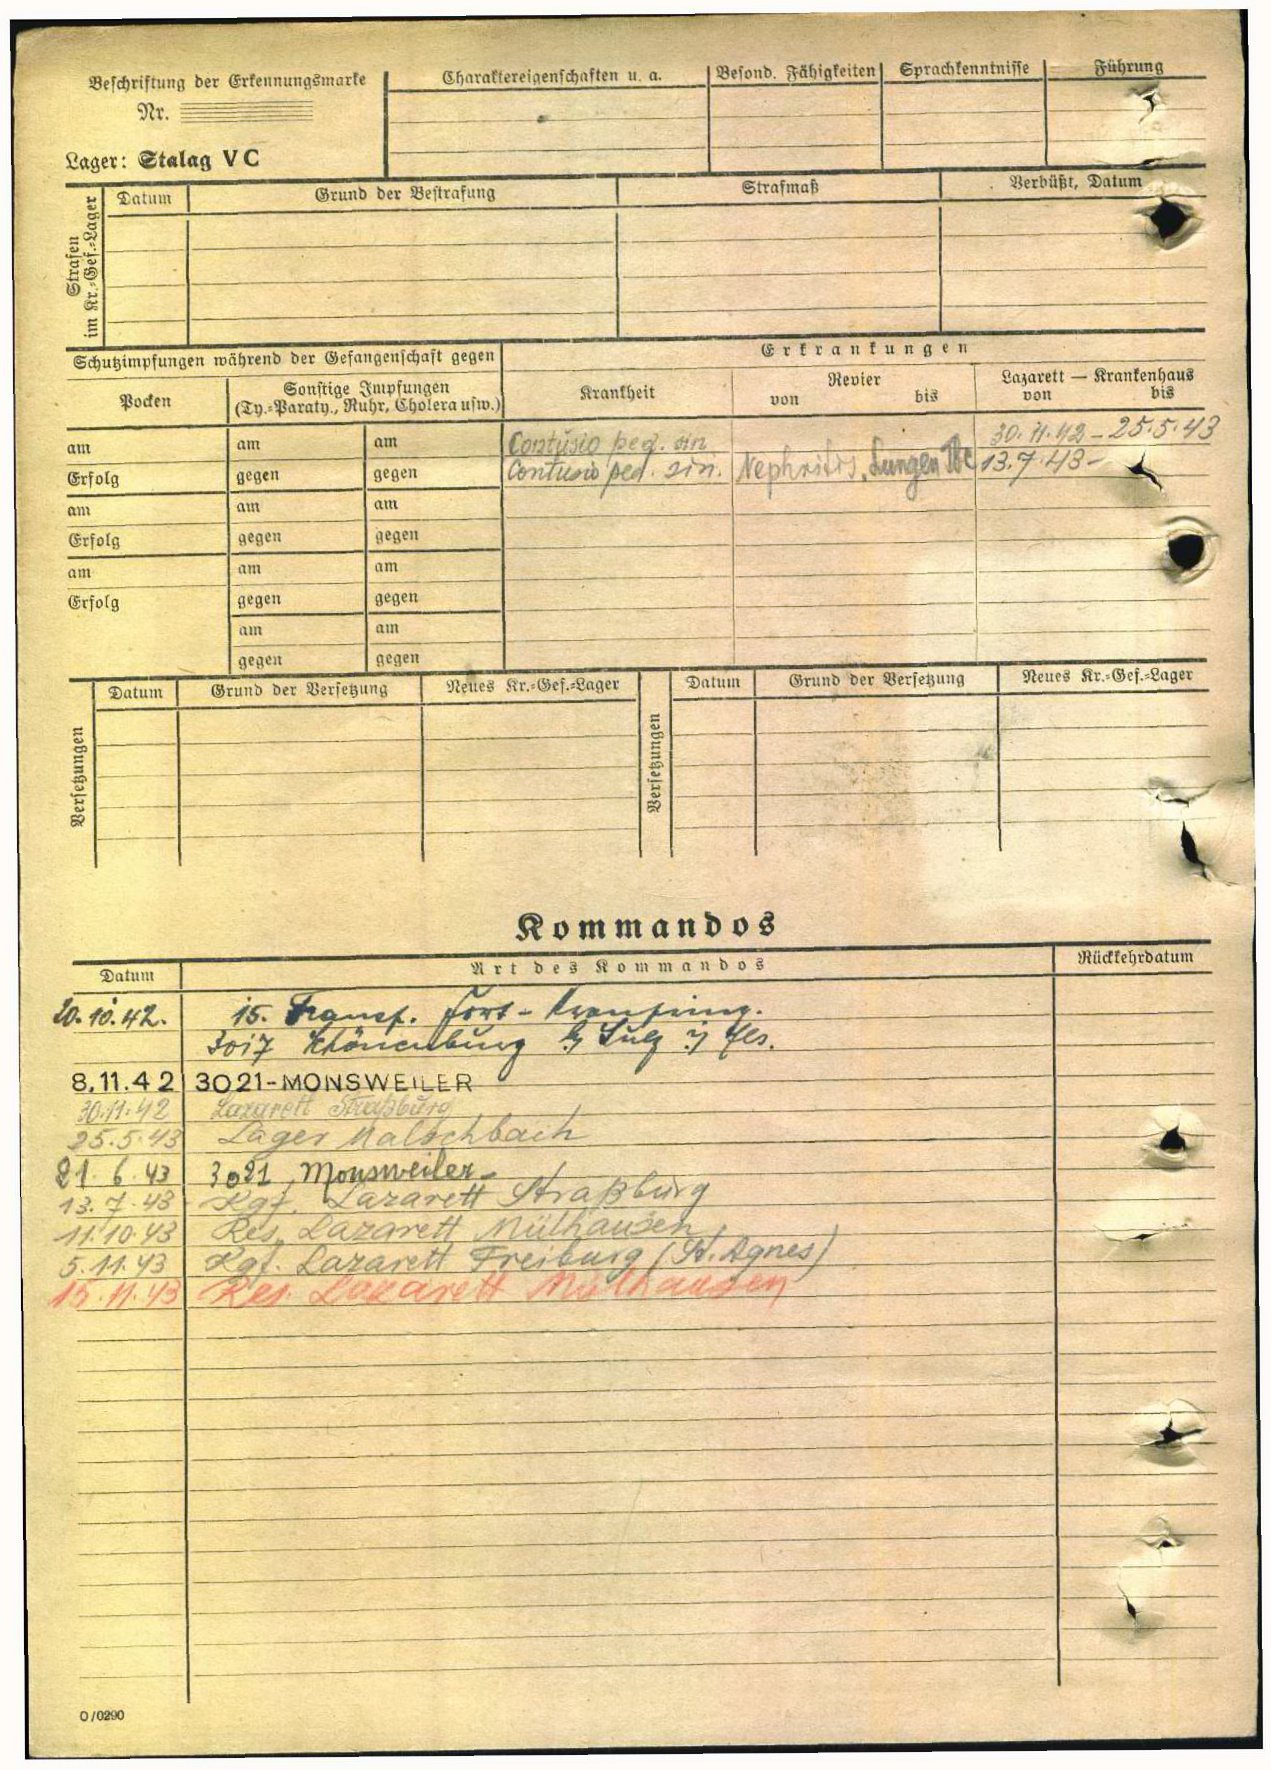 Beschriftung der Erkennungsmarke
Nr.
Lager: Stalag V C
Charaktereigenschaften u. a.
Besond. Fähigkeiten
Sprachkenntnisse
Führung
Strafen im Kr.-Gef.-Lager
Datum
Grund der Bestrafung
Strafmaß
Verbüßt, Datum
Schutzimpfungen während der Gefangenschaft gegen
Erkrankungen
Pocken
Sonstige Impfungen
(Ty.-Paraty., Ruhr, Cholera usw.)
Krankheit
Revier
von bis
Lazarett — Krankenhaus
von bis
am am am Contusio ped. sin 30.11.42 - 25.5.43
Erfolg gegen gegen Contusio ped. sin. Nephritis, Lungen Tbc 13.7.43-
am am am
Erfolg gegen gegen
am am am
Erfolg gegen gegen
am am
gegen gegen
Versetzungen
Datum
Grund der Versetzung
Neues Kr.-Gef.-Lager
Versetzungen
Datum
Grund der Versetzung
Neues Kr.-Gef.-Lager
Kommandos
Datum Art des Kommandos Rückkehrdatum
20.10.42. 15. Forst-
3017
8.11.42 3021-MONSWEILER
30.11.42 Lazarett Straßburg
25.5.43 Lager Malschbach
21.6.43 3021 Monsweiler
13.7.43 Kgf. Lazarett Straßburg
11.10.43 Res. Lazarett Mülhausen
5.11.43 Kgf. Lazarett Freiburg (St. Agnes)
15.11.43 Res. Lazarett Mülhausen
O/0290